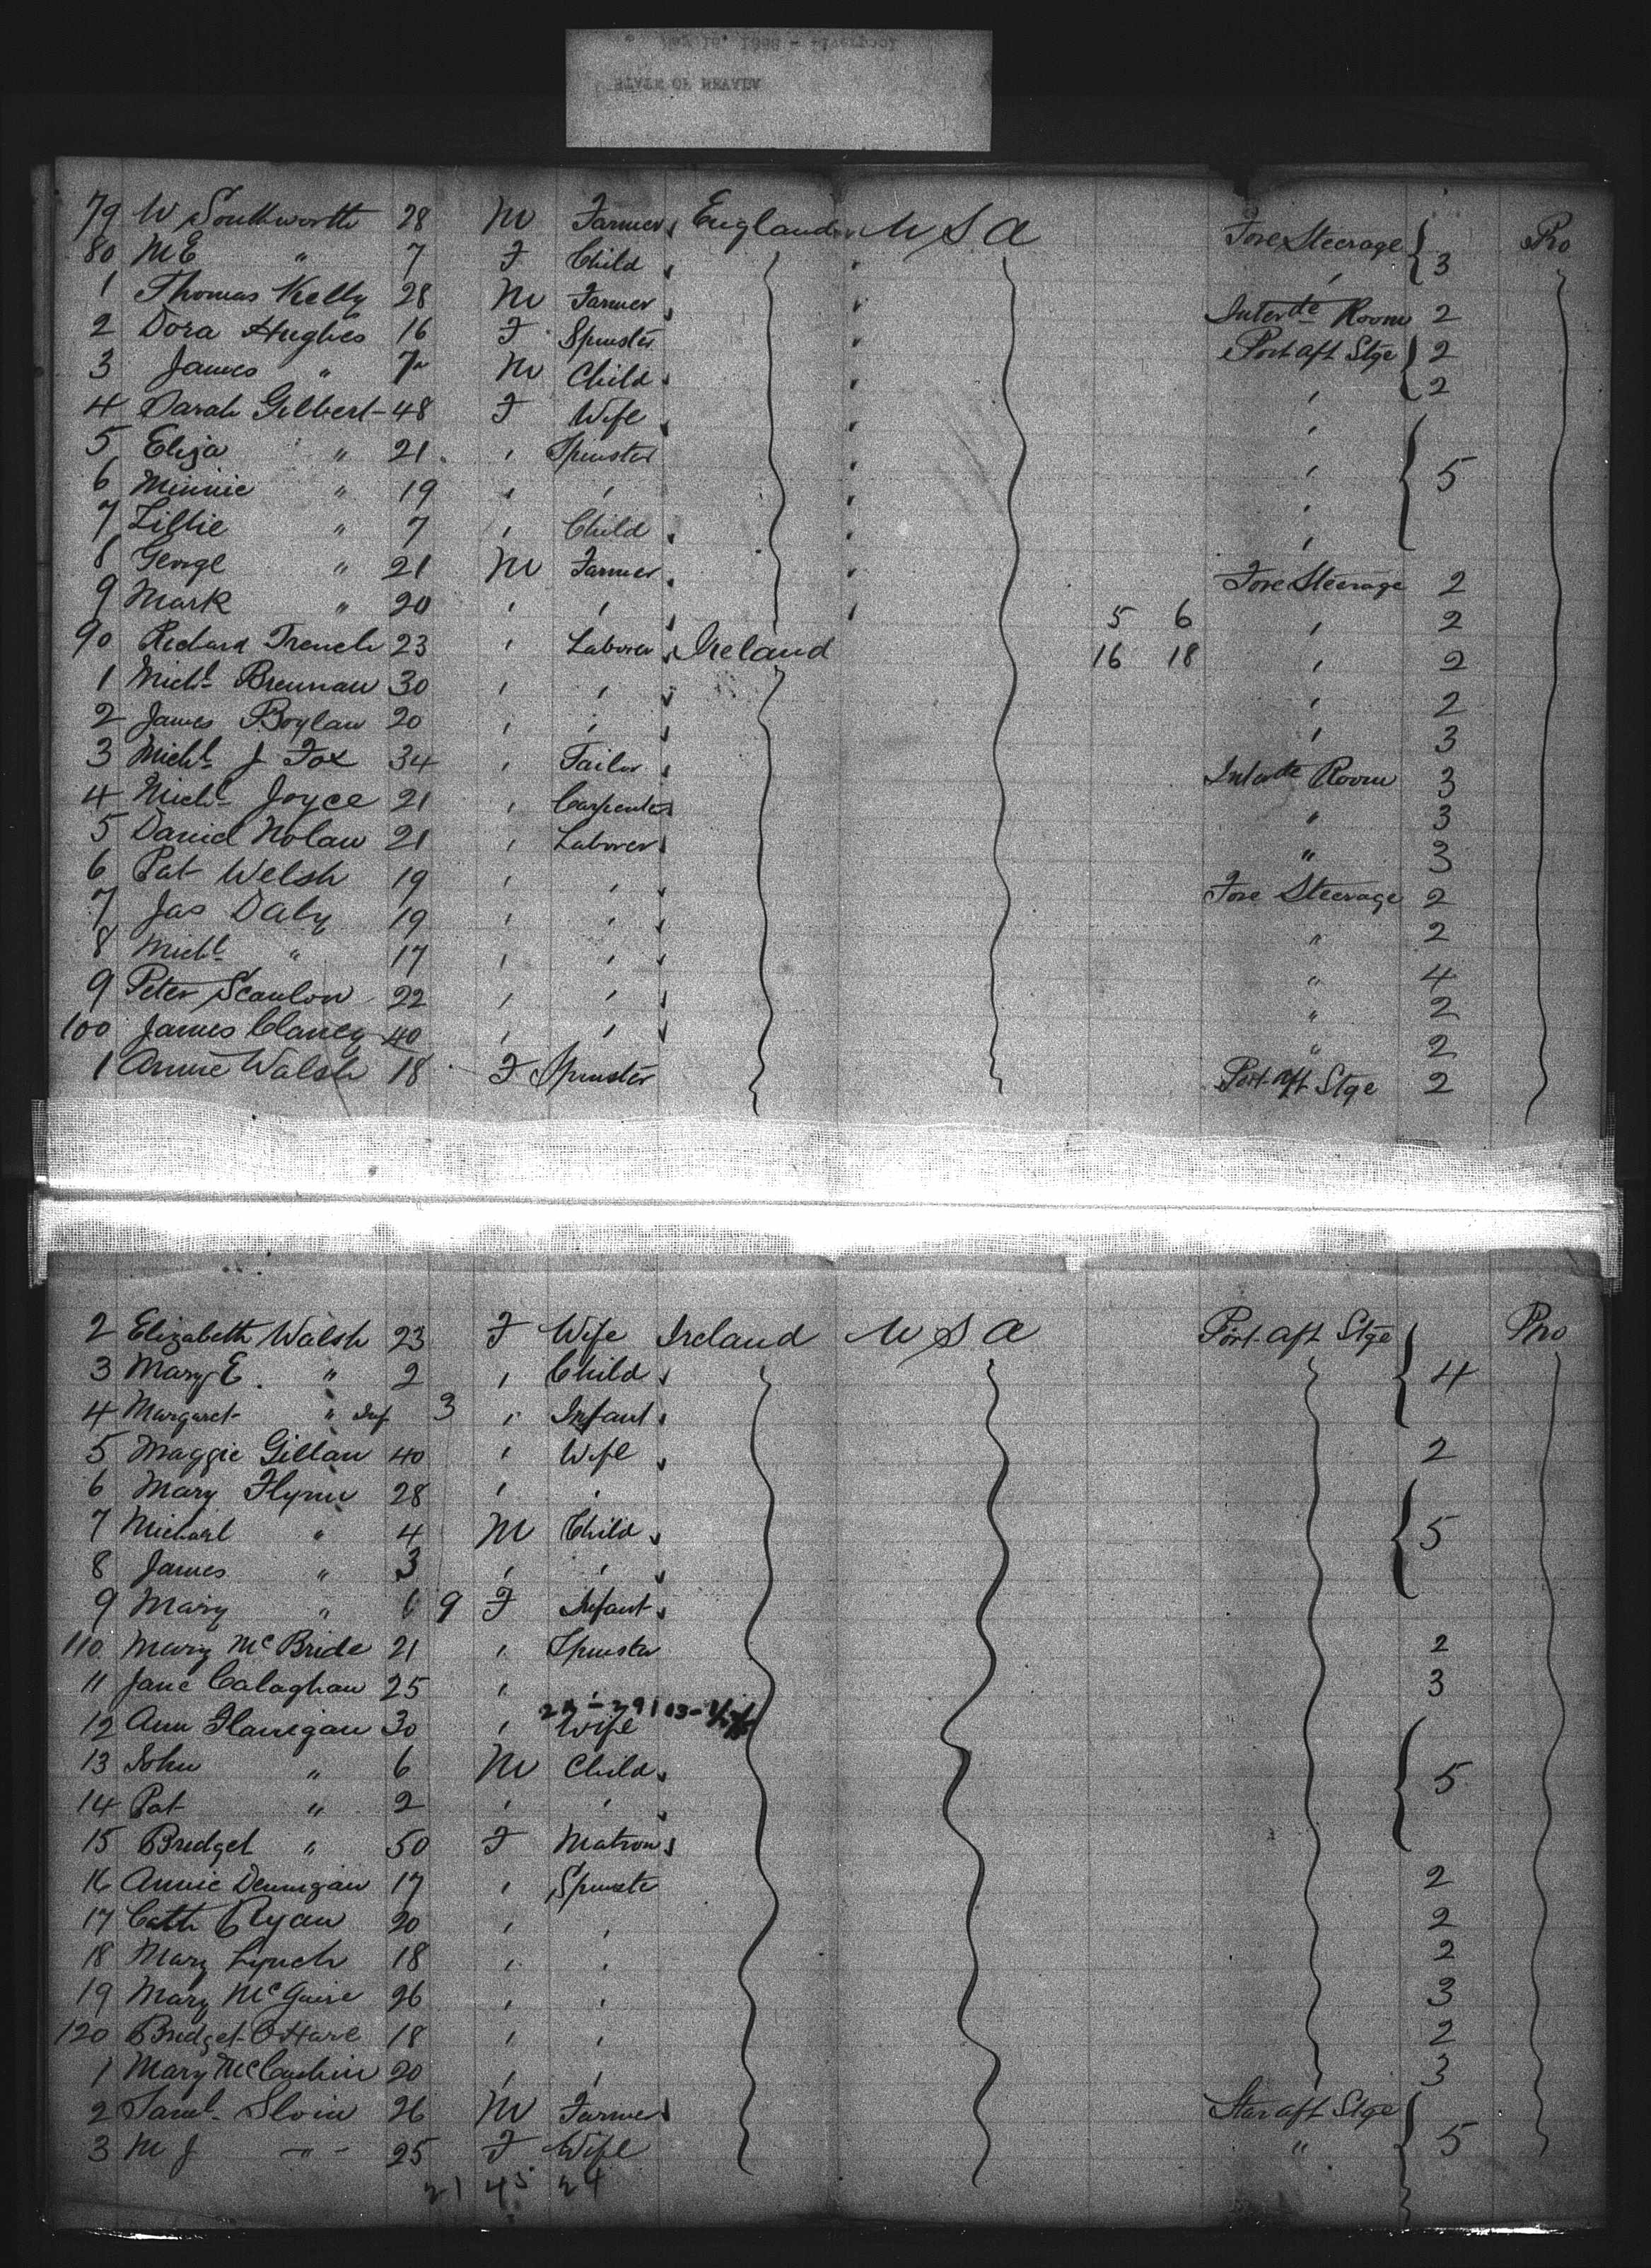 79 W Southworth 28 M Farmer England U S A Fore Steerage 3 Pro
80 M E " 7 F Child "
1 Thomas Kelly 28 M Farmer Interte Room 2
2 Dora Hughes 16 F Spinster Port aft Stge 2
3 James " 7 M Child " 2
4 Sarah Gilbert 48 F Wife "
5 Eliza " 21 " Spinster " 5
6 Minnie " 19 " " "
7 Lillie " 7 " Child "
8 George " 21 M Farmer Fore Steerage 2
9 Mark " 20 " " 5 6 " 2
90 Richard Trench 23 " Laborer Ireland 16 18 " 2
1 Michl Brennan 30 " " " 2
2 James Boylan 20 " " " 3
3 Michl J Fox 34 " Tailor Interte Room 3
4 Michl Joyce 21 " Carpenter " 3
5 Daniel Nolan 21 " Laborer " 3
6 Pat Welsh 19 " " Fore Steerage 2
7 Jas Daly 19 " " " 2
8 Michl " 17 " " " 4
9 Peter Scanlon 22 " " " 2
100 James Clancy 40 " " " 2
1 Annie Walsh 18 F Spinster Port aft Stge 2
2 Elizabeth Walsh 23 F Wife Ireland U S A Port aft Stge Pro
3 Mary E. " 2 " Child 4
4 Margaret " Inf 3 " Infant
5 Maggie Gillan 40 " Wife 2
6 Mary Flynn 28 " "
7 Michael " 4 M Child 5
8 James " 3 " "
9 Mary " 9 F Infant
110 Mary McBride 21 " Spinster 2
11 Jane Calaghan 25 " " 3
12 Ann Flanigan 30 " Wife
13 John " 6 M Child 5
14 Pat " 2 " "
15 Bridget " 50 F Matron
16 Annie Dennigan 17 " Spinster 2
17 Cath Ryan 20 " " 2
18 Mary Lynch 18 " " 2
19 Mary McGuire 26 " " 3
120 Bridget O'Hare 18 " " 2
1 Mary McCashin 20 " " 3
2 Saml Sloin 26 M Farmer Star aft Stge
3 M J " 25 F Wife " 5
21 45 24